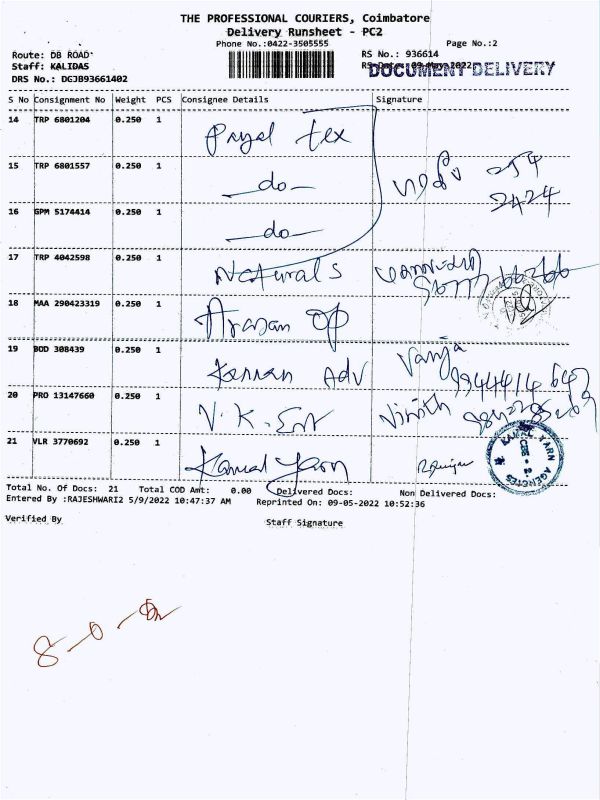 THE PROFESSIONAL COURIERS, Coimbatore
Delivery Runsheet - PC2
Phone No.:0422-3505555 Page No.:2
Route: DB ROAD RS No.: 936614
Staff: KALIDAS 09-May-2022
DOCUMENT DELIVERY
DRS No.: DGJB93661402
S No Consignment No Weight PCS Consignee Details Signature
14 TRP 6801204 0.250 1 Payal tex
15 TRP 6801557 0.250 1 -do-
16 GPM 5174414 0.250 1 -do-
2424
17 TRP 4042598 0.250 1 Naturals
18 MAA 290423319 0.250 1 Arasan
19 BOD 308439 0.250 1 Kannan Adv Vanja
20 PRO 13147660 0.250 1 V.K. Ent Vinith
21 VLR 3770692 0.250 1 Kamal Yarn
KAMAL YARN AGENCIES
CBE - 2.
Total No. Of Docs: 21 Total COD Amt: 0.00 Delivered Docs: Non Delivered Docs:
Entered By :RAJESHWARI2 5/9/2022 10:47:37 AM Reprinted On: 09-05-2022 10:52:36
Verified By Staff Signature